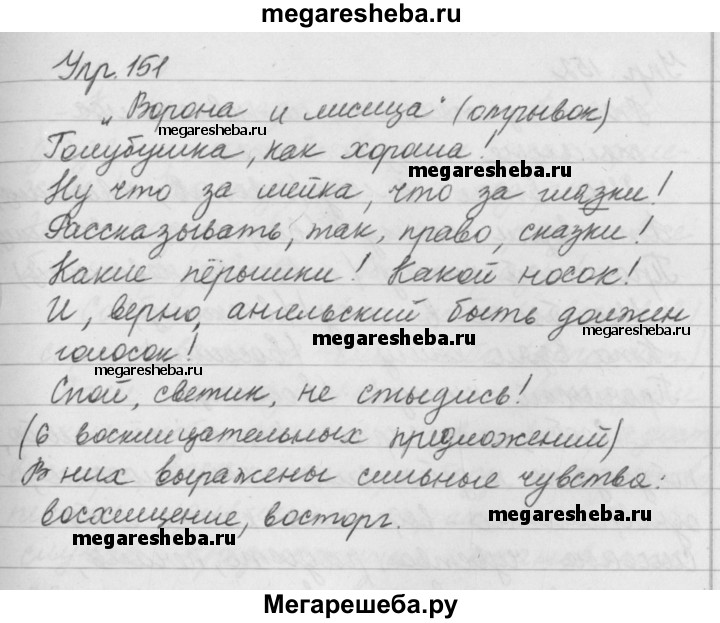 megaresheba.ru
Упр. 151
„Ворона и лисица" (отрывок)
megaresheba.ru
Голубушка, как хороша!
megaresheba.ru
Ну что за шейка, что за глазки!
Рассказывать, так, право, сказки!
Какие пёрышки! Какой носок!
И, верно, ангельский быть должен
megaresheba.ru
megaresheba.ru
голосок!
megaresheba.ru
Спой, светик, не стыдись!
(6 восклицательных предложений)
В них выражены сильные чувства:
восхищение, восторг.
megaresheba.ru
megaresheba.ru
Мегарешеба.ру